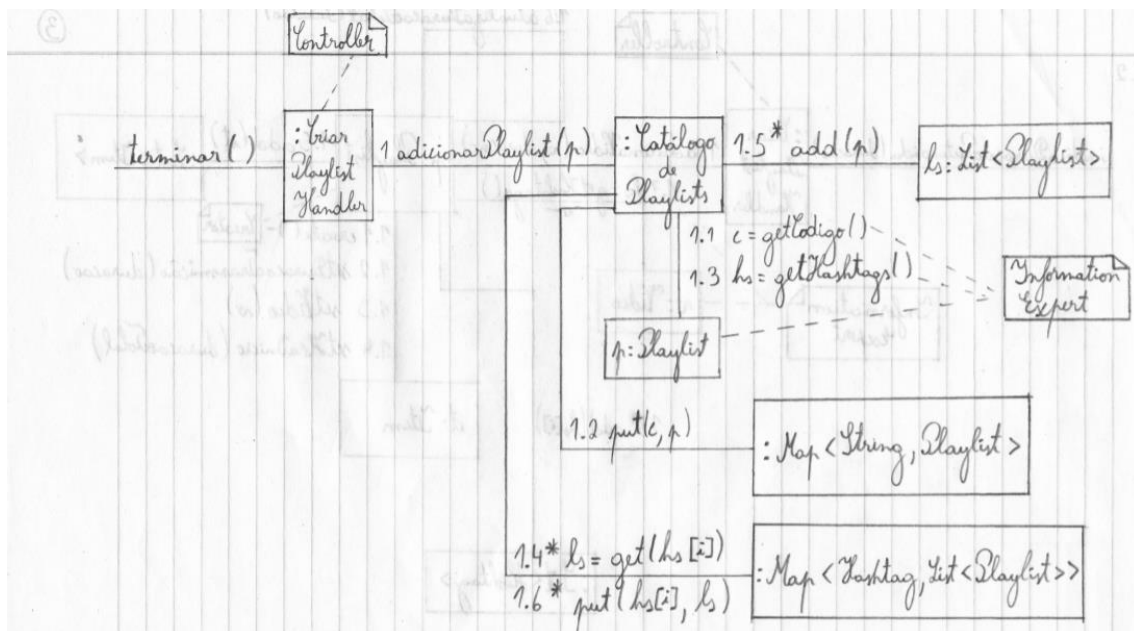 3
Controller
terminar()
: Criar
Playlist
Handler
1 adicionarPlaylist(p)
: Catálogo
de
Playlists
1.5* add(p)
ls: List<Playlist>
1.1 c = getCodigo()
1.3 hs = getHashtags()
Information
Expert
p: Playlist
1.2 put(c, p)
: Map<String, Playlist>
1.4* ls = get(hs[i])
1.6* put(hs[i], ls)
: Map<Hashtag, List<Playlist>>